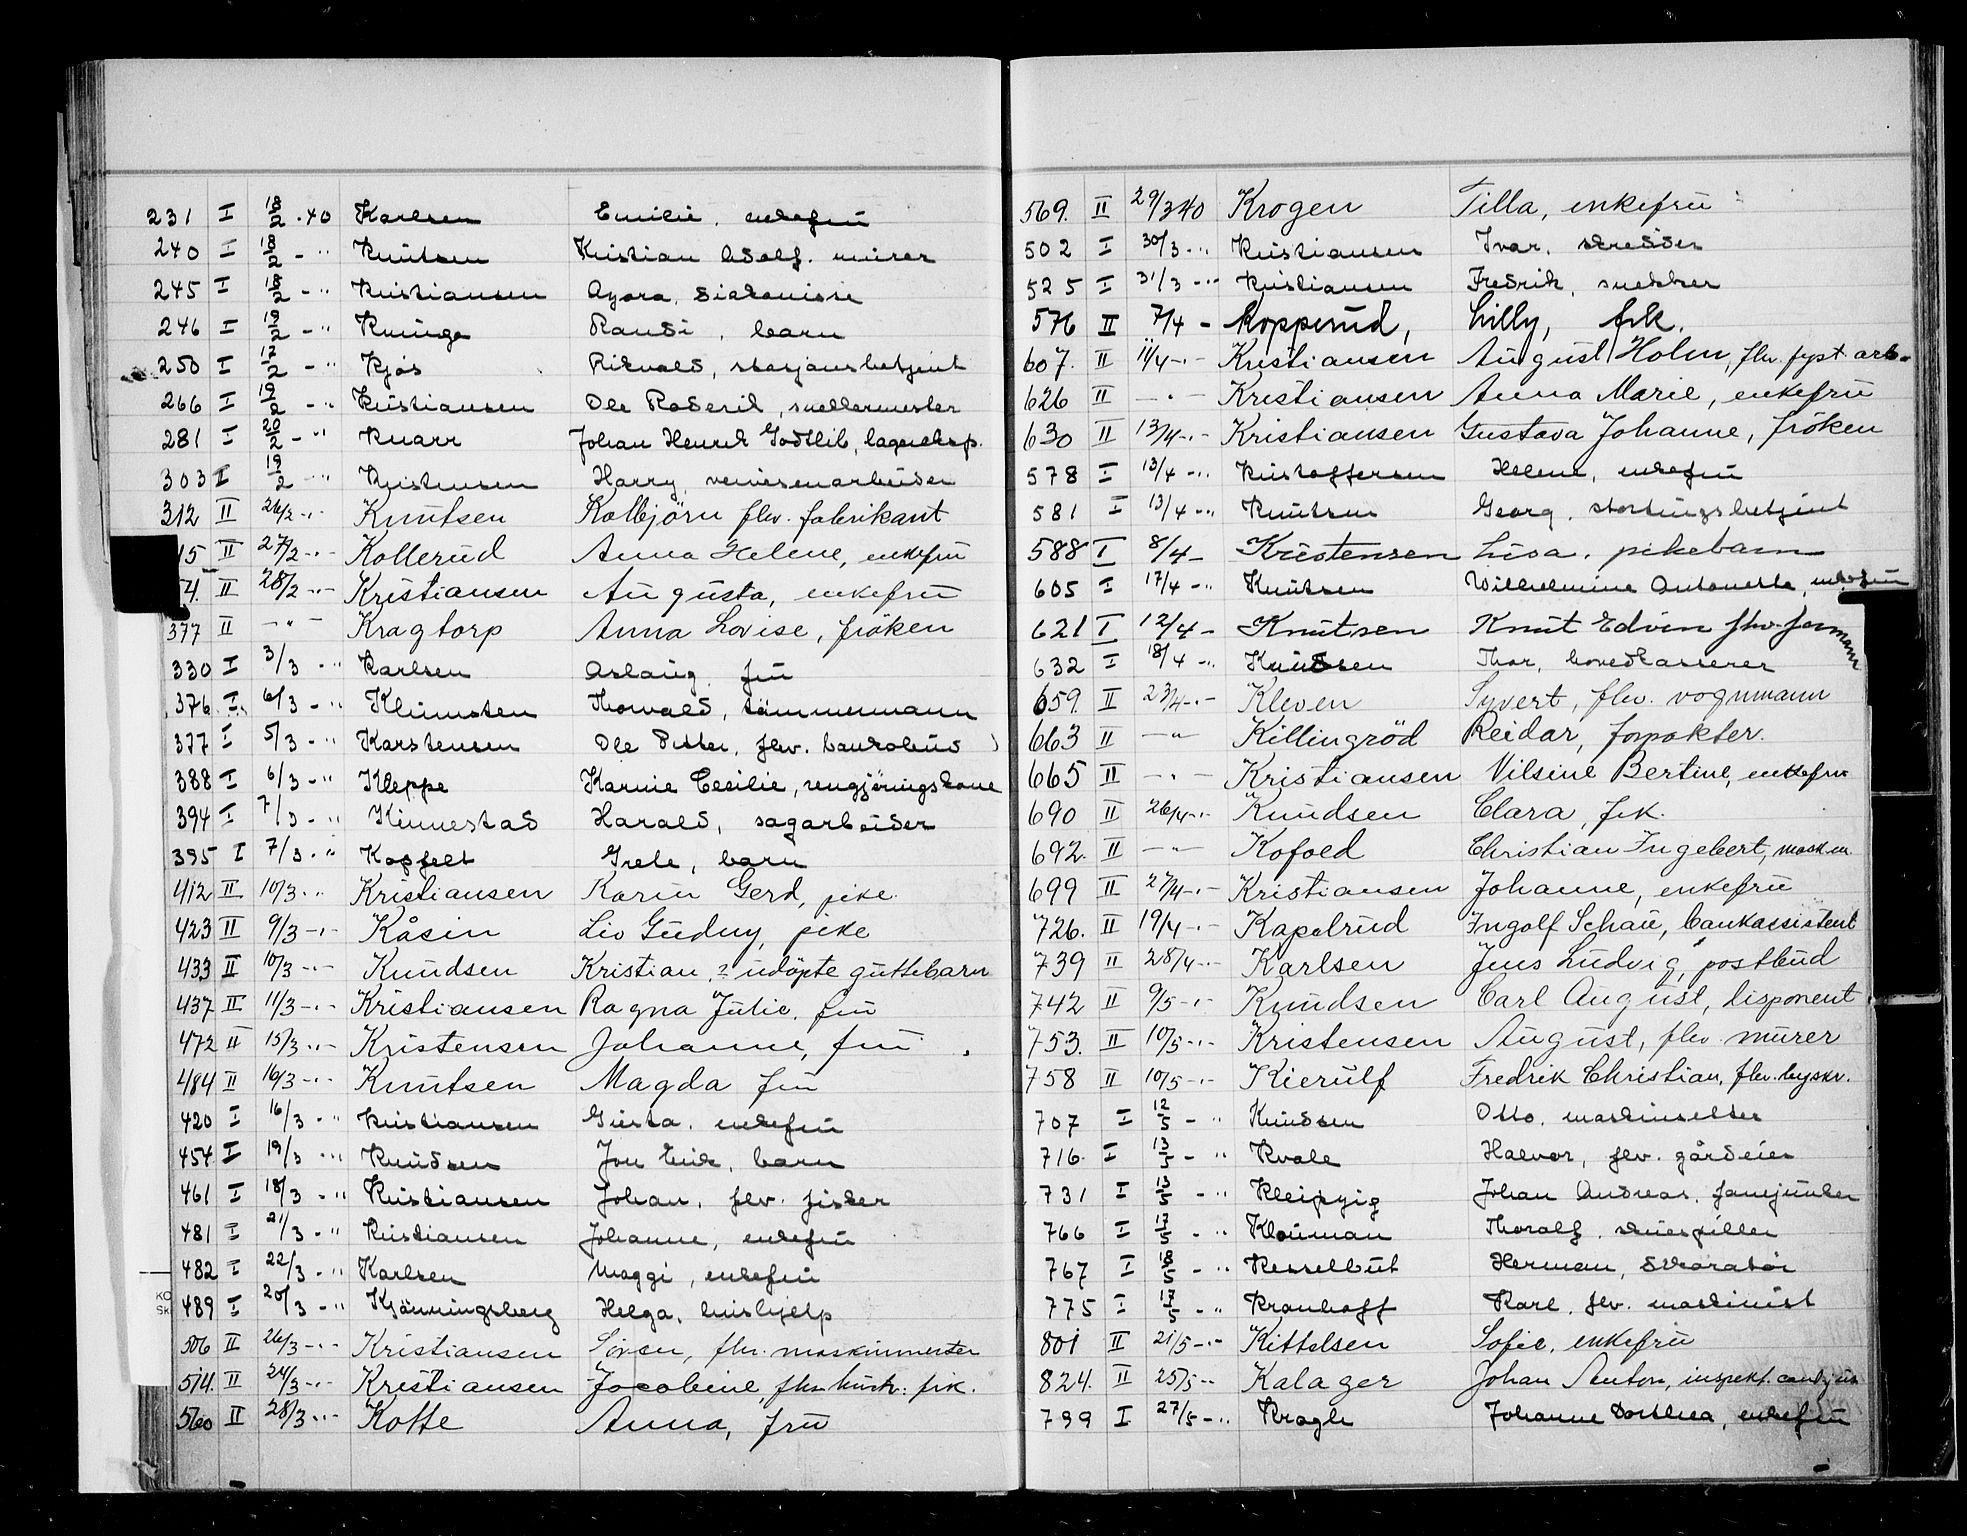 231 I 18/2 - 40 Karlsen Emilie, enkefru
240 I 18/2 - " Knutsen Kristian Adolf, murer
245 I 18/2 - " Kristiansen Agora, diakonisse
246 I 19/2 - " Kninge Randi, barn
250 I 12/2 - " Kjøs Rikvald, stasjonsbetjent
266 I 19/2 - " Kristiansen Ole Roderik, snekkermester
281 I 20/2 - " Knarr Johan Henrik Godtlib, lagereksp.
303 I 19/2 - " Kristensen Harry, verksarbeider
312 II 26/2 - " - Knutsen Kolbjörn flv. fabrikant
15 II 27/2 - " - Kollerud Anna Helene, enkefru
54. II 28/2 - " - Kristiansen Augusta, enkefru
377 II - " - Kragtorp Anna Lovise, fröken
330 I 3/3 - " Karlsen Aslaug, fru
376 I 6/3 - " Klumsten Thorvald, tömmermann
377 I 5/3 - " Karstensen Ole Petter, flv. bankobud
388 I 6/3 - " Kleppe Karnie Cecilie, rengjöringskone
394 I 7/3 - " Kinnestad Harald, sagarbeider
395 I 7/3 - " Kopfelt Grete, barn
412 II 10/3 - " Kristiansen Karin Gerd, pike
423 II 9/3 - " - Kåsin Liv Gudny, pike
433 II 10/3 - " - Knudsen Kristian, 2 udöpte guttebarn
437 II 11/3 - " - Kristiansen Ragna Julie, fru
472 II 15/3 - " - Kristensen Johanne, fru
484 II 16/3 - " - Knutsen Magda fru
420 I 16/3 - " Kristiansen Gusta, enkefru
454 I 19/3 - " Knudsen Jon Erik, barn
461 I 18/3 - " Kristiansen Johan, flv. fisker
481 I 21/3 - " Kristiansen Johanne, enkefru
482 I 22/3 - " Karlsen Maggi, enkefru
489 I 20/3 - " Kjönningsberg Helga, hushjelp
506 II 26/3 - " - Kristiansen Sörsen, flv. maskinmester
514. II 24/3 - " - Kristiansen Jacobine, flv. frk.
560 II 28/3 - " - Kotte Anna, fru
569. II 29/3 40 Krogen Tilla, enkefru
502 I 30/3 - " Kristiansen Ivar, skredder
525 I 31/3 - " Kristiansen Fredrik, snekker
576 II 7/4 - Kopperud, Lilly, frk.
607. II 11/4 - " - Kristiansen August Holm, flv. fyst. arb.
626 II - " - Kristiansen Anna Marie, enkefru
630 II 13/4 - " - Kristiansen Gustava Johanne, fröken
578 I 13/4 - " Kristoffersen Helene, enkefru
581 I 13/4 - " Knutsen Georg, stortingsbetjent
588 I 8/4 - Kristensen Lisa, pikebarn
605 I 17/4 - " Knutsen Wilhelmine Antonette, enkefru
621 I 12/4 - Knutsen Knut Edvin flv. formann
632 I 18/4 - " Knudsen Thor, hovedkasserer
659. II 23/4 - " - Kleven Syvert, flv. vognmann
663 II - " - Killingröd Reidar, forpakter.
665 II - " - Kristiansen Vilsine Bertine, enkefru
690 II 26/4 - " - Knudsen Clara, frk.
692. II - " - Kofoed Christian Ingebert, mask.m.
699 II 27/4 - " - Kristiansen Johanne, enkefru
726. II 19/4 - " - Kapelrud Ingolf Schau, bankassistent
739 II 28/4 - " - Karlsen Jens Ludvig, postbud
742 II 9/5 - " - Knudsen Carl August, disponent
753. II 10/5 - " - Kristensen August, flv. murer
758 II 10/5 - " - Kierulf Fredrik Christian, flv. byskr.
707 I 12/5 - " Knudsen Otto, maskinsetter
716 I 13/5 - " Kvale Halvor, flv. gårdeier
731 I 13/5 - " Kleipzig Johan Andreas, fanejunker
766 I 17/5 - " Klouman Thoralf, skuespiller
767 I 18/5 - " Kesselbut Herman, dekoratør
775 I 17/5 - " Kranhoff Karl, flv. maskinist
801 II 21/5 - " - Kittelsen Sofie, enkefru
824. II 25/5 - " Kalager Johan Anton, inspekt. cand. jur.
799 I 27/5 - " Kragh Johanne Dorthea, enkefru